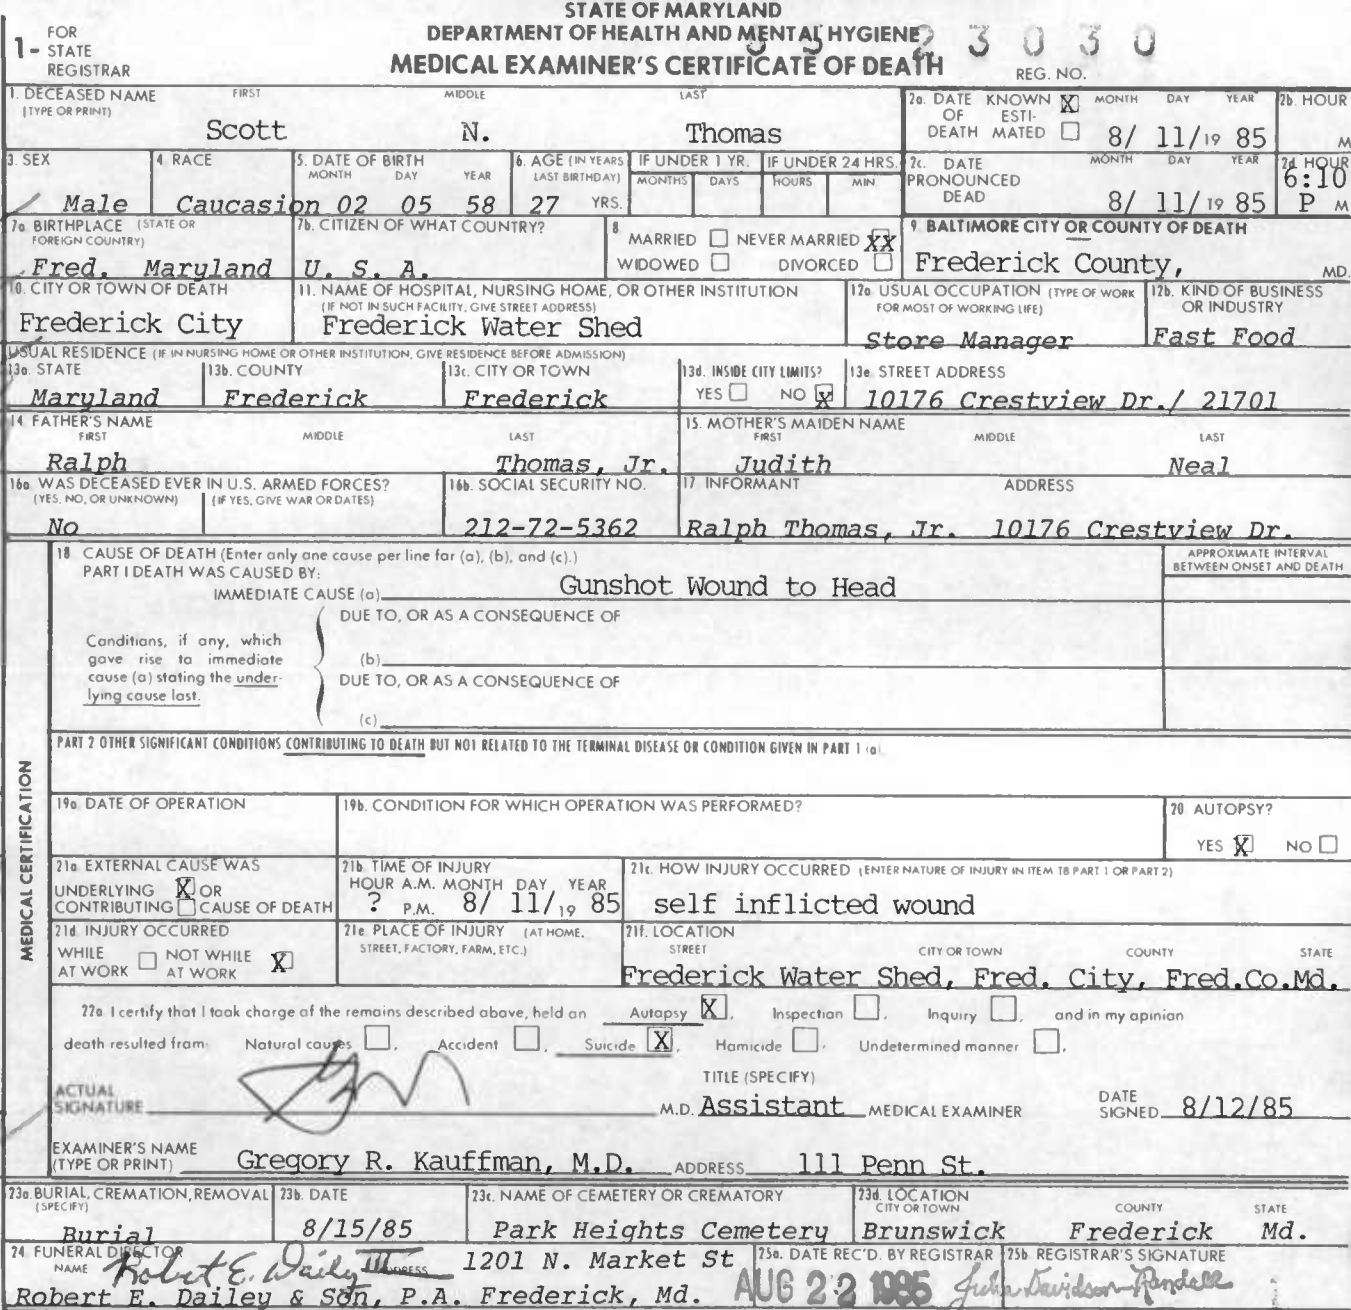 STATE OF MARYLAND
DEPARTMENT OF HEALTH AND MENTAL HYGIENE
MEDICAL EXAMINER'S CERTIFICATE OF DEATH
1- FOR STATE REGISTRAR
23030
REG. NO.
1. DECEASED NAME (TYPE OR PRINT) FIRST MIDDLE LAST
Scott N. Thomas
2a. DATE OF DEATH KNOWN X ESTIMATED MONTH DAY YEAR
8/ 11/19 85
2b. HOUR M
3. SEX
Male
4. RACE
Caucasion
5. DATE OF BIRTH MONTH DAY YEAR
02 05 58
6. AGE (IN YEARS LAST BIRTHDAY)
27 YRS.
IF UNDER 1 YR. MONTHS DAYS
IF UNDER 24 HRS. HOURS MIN
2c. DATE PRONOUNCED DEAD MONTH DAY YEAR
8/ 11/19 85
2d HOUR
6:10 P M
7a. BIRTHPLACE (STATE OR FOREIGN COUNTRY)
Fred. Maryland
7b. CITIZEN OF WHAT COUNTRY?
U. S. A.
8 MARRIED NEVER MARRIED XX
WIDOWED DIVORCED
9. BALTIMORE CITY OR COUNTY OF DEATH
Frederick County, MD.
10. CITY OR TOWN OF DEATH
Frederick City
11. NAME OF HOSPITAL, NURSING HOME, OR OTHER INSTITUTION
(IF NOT IN SUCH FACILITY, GIVE STREET ADDRESS)
Frederick Water Shed
12a. USUAL OCCUPATION (TYPE OF WORK FOR MOST OF WORKING LIFE)
Store Manager
12b. KIND OF BUSINESS OR INDUSTRY
Fast Food
USUAL RESIDENCE (IF IN NURSING HOME OR OTHER INSTITUTION, GIVE RESIDENCE BEFORE ADMISSION)
13a. STATE
Maryland
13b. COUNTY
Frederick
13c. CITY OR TOWN
Frederick
13d. INSIDE CITY LIMITS?
YES NO X
13e STREET ADDRESS
10176 Crestview Dr./ 21701
14. FATHER'S NAME FIRST MIDDLE LAST
Ralph Thomas, Jr.
15. MOTHER'S MAIDEN NAME FIRST MIDDLE LAST
Judith Neal
16a. WAS DECEASED EVER IN U.S. ARMED FORCES?
(YES, NO, OR UNKNOWN) (IF YES, GIVE WAR OR DATES)
No
16b. SOCIAL SECURITY NO.
212-72-5362
17 INFORMANT ADDRESS
Ralph Thomas, Jr. 10176 Crestview Dr.
MEDICAL CERTIFICATION
18 CAUSE OF DEATH (Enter only one cause per line for (a), (b), and (c).)
PART I DEATH WAS CAUSED BY:
IMMEDIATE CAUSE (a) Gunshot Wound to Head
APPROXIMATE INTERVAL BETWEEN ONSET AND DEATH
DUE TO, OR AS A CONSEQUENCE OF
Conditions, if any, which gave rise to immediate cause (a) stating the underlying cause last.
(b)
DUE TO, OR AS A CONSEQUENCE OF
(c)
PART 2 OTHER SIGNIFICANT CONDITIONS CONTRIBUTING TO DEATH BUT NOT RELATED TO THE TERMINAL DISEASE OR CONDITION GIVEN IN PART 1 (a)
19a. DATE OF OPERATION
19b. CONDITION FOR WHICH OPERATION WAS PERFORMED?
20 AUTOPSY?
YES X NO
21a. EXTERNAL CAUSE WAS
UNDERLYING X OR
CONTRIBUTING CAUSE OF DEATH
21b. TIME OF INJURY
HOUR A.M. MONTH DAY YEAR
? P.M. 8/ 11/19 85
21c. HOW INJURY OCCURRED (ENTER NATURE OF INJURY IN ITEM 18 PART 1 OR PART 2)
self inflicted wound
21d. INJURY OCCURRED
WHILE AT WORK NOT WHILE AT WORK X
21e. PLACE OF INJURY (AT HOME, STREET, FACTORY, FARM, ETC.)
21f. LOCATION
STREET CITY OR TOWN COUNTY STATE
Frederick Water Shed, Fred. City, Fred.Co.Md.
22a. I certify that I took charge of the remains described above, held an Autopsy X, Inspection, Inquiry, and in my opinion
death resulted from: Natural causes, Accident, Suicide X, Homicide, Undetermined manner.
ACTUAL SIGNATURE M.D.
TITLE (SPECIFY)
Assistant MEDICAL EXAMINER
DATE SIGNED 8/12/85
EXAMINER'S NAME (TYPE OR PRINT) Gregory R. Kauffman, M.D. ADDRESS 111 Penn St.
23a. BURIAL, CREMATION, REMOVAL (SPECIFY)
Burial
23b. DATE
8/15/85
23c. NAME OF CEMETERY OR CREMATORY
Park Heights Cemetery
23d. LOCATION CITY OR TOWN COUNTY STATE
Brunswick Frederick Md.
24 FUNERAL DIRECTOR NAME ADDRESS
Robert E. Daily III 1201 N. Market St
Robert E. Dailey & Son, P.A. Frederick, Md.
25a. DATE REC'D. BY REGISTRAR
AUG 22 1985
25b. REGISTRAR'S SIGNATURE
Julia Davidson-Randall